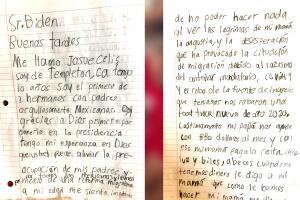 Sr. Biden
Buenas tardes
Me llamo Josue Celis
soy de Templeton, Ca tengo
10 años. Soy el primero de
2 hermanos con padres
orgullosamente Mexicanos. Doy
gracias a Dios primero por
ponerlo en la presidencia
tengo mi esperanza en Dios
que usted puede aliviar la pre-
ocupación de mis padres y
medio de una reforma migratoria
a mi edad me siento
de no poder hacer nada
al ver las lagrimas de mi mamá
la angustia, y la desesperación
que ha provocado la citación
de migración debido al racismo
del anterior mandatario,
y el robo de la fuente de ingreso
que teniamos nos robaron una
ford nueva de año 2020,
lastimosamente mi papá nos
con dollares al mes y con
eso mismo paga la renta,
luz y biles, a beces cuando no
tenemos dinero le digo a mi
mamá que como le bamos
hacer mi mamá me